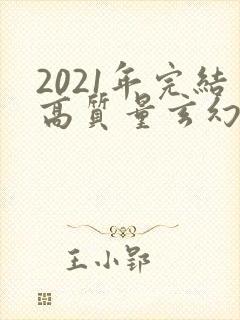 2021年完結
高質量玄幻
王小郢